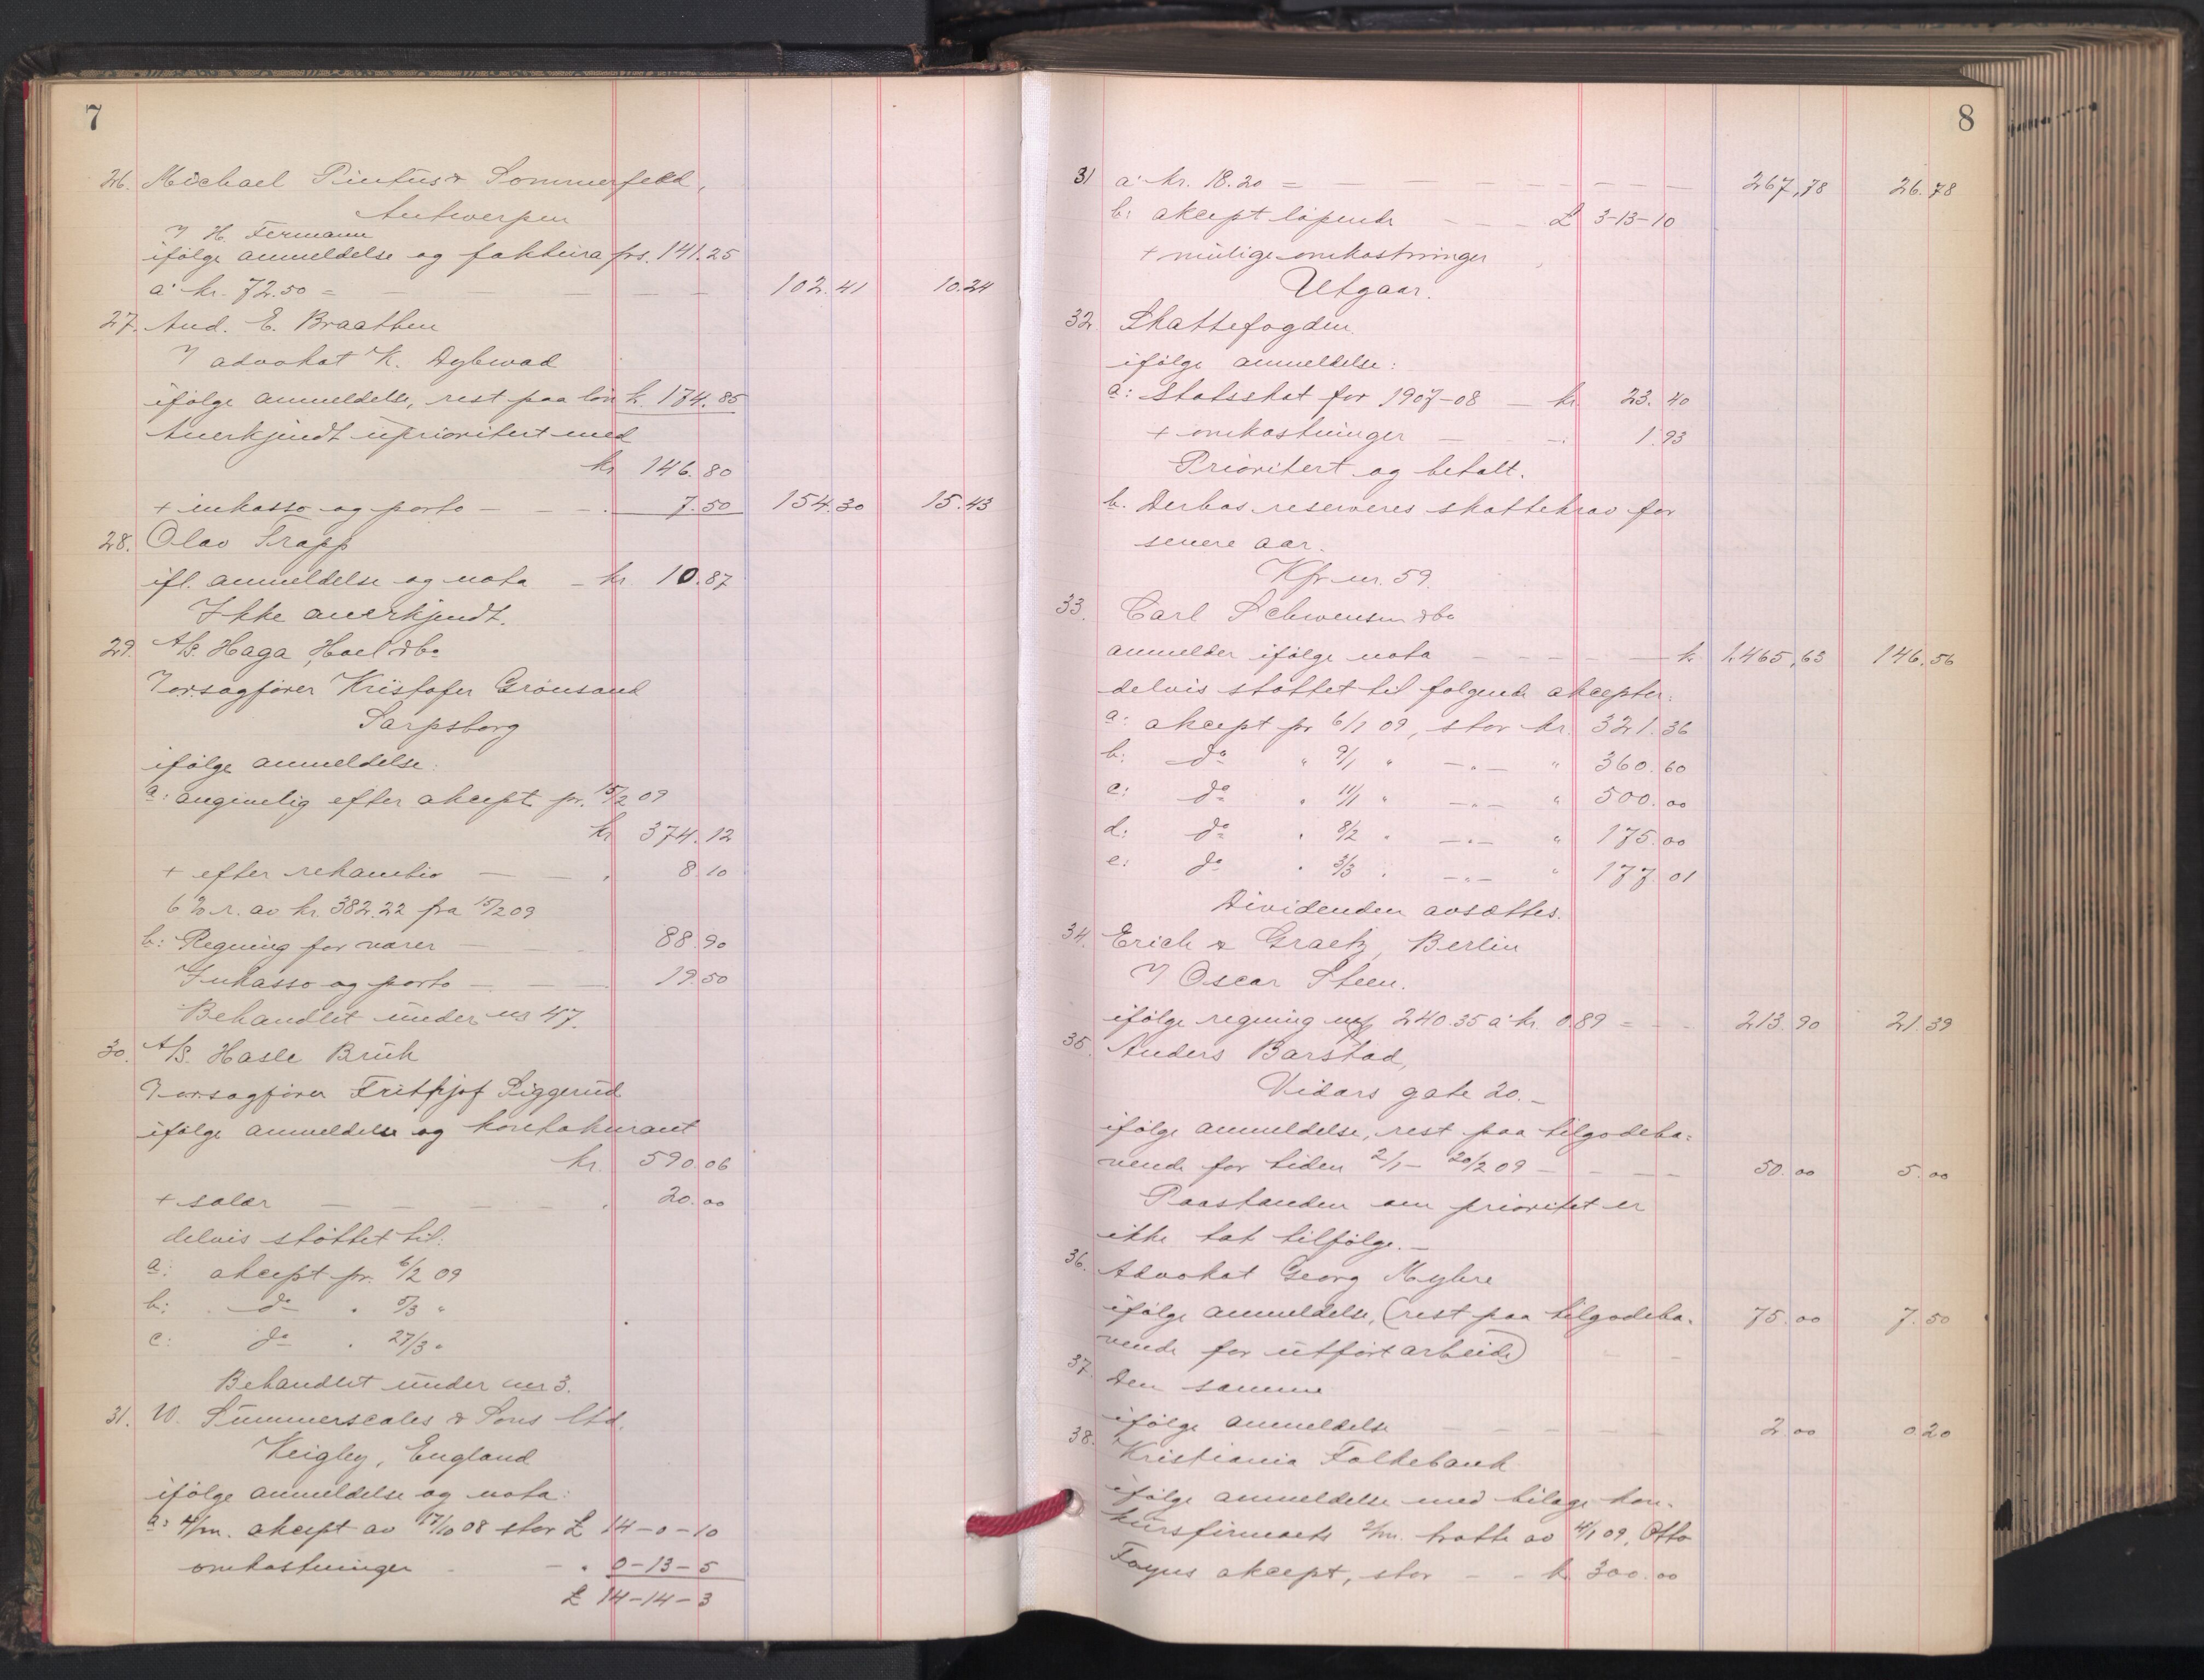 7
26. Michael Pintus & Sommerfeld,
Antwerpen
V H. Fermann
ifölge anmeldelse og faktura frs. 141.25
a' kr. 72.50 = — — — — — 102.41 10.24
27. And. E. Braathen
V advokat K. Dybwad
ifölge anmeldelse, rest paa lön k. 174.85
Anerkjendt uprioritert med
kr 146.80
+ inkasso og porto — — — 7.50 154.30 15.43
28. Olav Trapp
ifl. anmeldelse og nota — kr. 10.87
Ikke anerkjendt.
29. A/S. Haga, Hoel dbo
V orsagförer Kristofer Grönsand
Sarpsborg
ifölge anmeldelse:
a: angivelig efter akcept pr. 15/2 09
kr 374.12
+ efter rekambio — — 8.10
6 % r. av kr. 382.22 fra 15/2 09
b: Regning for varer — — 88.90
Inkasso og porto — — — 19.50
Behandlet under nr 47.
30. A/S. Hasle Bruk
V orsagförer Frithjof Siggerud
ifölge anmeldelse og kontokurant
kr. 590.06
+ salær — — — — — 20.00
delvis stöttet til:
a: akcept pr. 6/2 09
b: do " 5/3 "
c: do " 27/3 "
Behandlet under nr 3.
31. W. Summerscales & Sons Ltd.
Keigley, England
ifölge anmeldelse og nota:
a: 4/m. akcept av 17/10 08 stor £ 14-0-10
omkostninger — " 0-13-5
£ 14-14-3
8
31 a' kr. 18.20 = — — — — — — — — 267,78 26.78
b: akcept löpende — — — £ 3-13-10
+ mulige omkostninger
Utgaar.
32. Skattefogden.
ifölge anmeldelse:
a: Statsskat for 1907-08 — kr. 23.40
+ omkostninger — — 1.93
Prioritert og betalt.
b. Derhos reserveres skattekrav for
senere aar.
Kfr nr. 59.
33. Carl Schwensen dbo
anmelder ifölge nota — — — — — k 1.465,63 146,56
delvis stöttet til fölgende akcepter:
a: akcept pr 6/1 09, stor kr. 321.36
b: do " 9/1 " —"— " 360.60
c: do " 11/1 " —"— " 500.00
d: do " 8/2 " —"— " 175.00
e: do " 3/3 " —"— " 177.01
Dividenden avsættes.
34. Erich & Graetz, Berlin
V Oscar Steen.
ifölge regning 240.35 a' kr. 0.89 = — 213.90 21.39
35. Anders Barstad,
Vidars gate 20.—
ifölge anmeldelse, rest paa tilgodeha=
vende for tiden 2/1 — 20/2 09 — — — — 50.00 5.00
Paastanden om prioritet er
ikke tat tilfölge.—
36. Advokat Georg Myhre
ifölge anmeldelse, (rest paa tilgodeha= 75.00 7.50
vende for utfört arbeide)
37. Den samme
ifölge anmeldelse — — — — — — 2.00 0.20
38. Kristiania Folkebank
ifölge anmeldelse med bilage kon=
kursfirmaets 2/m. tratte av 4/1 09, Otto
akcept, stor — — k 300.00